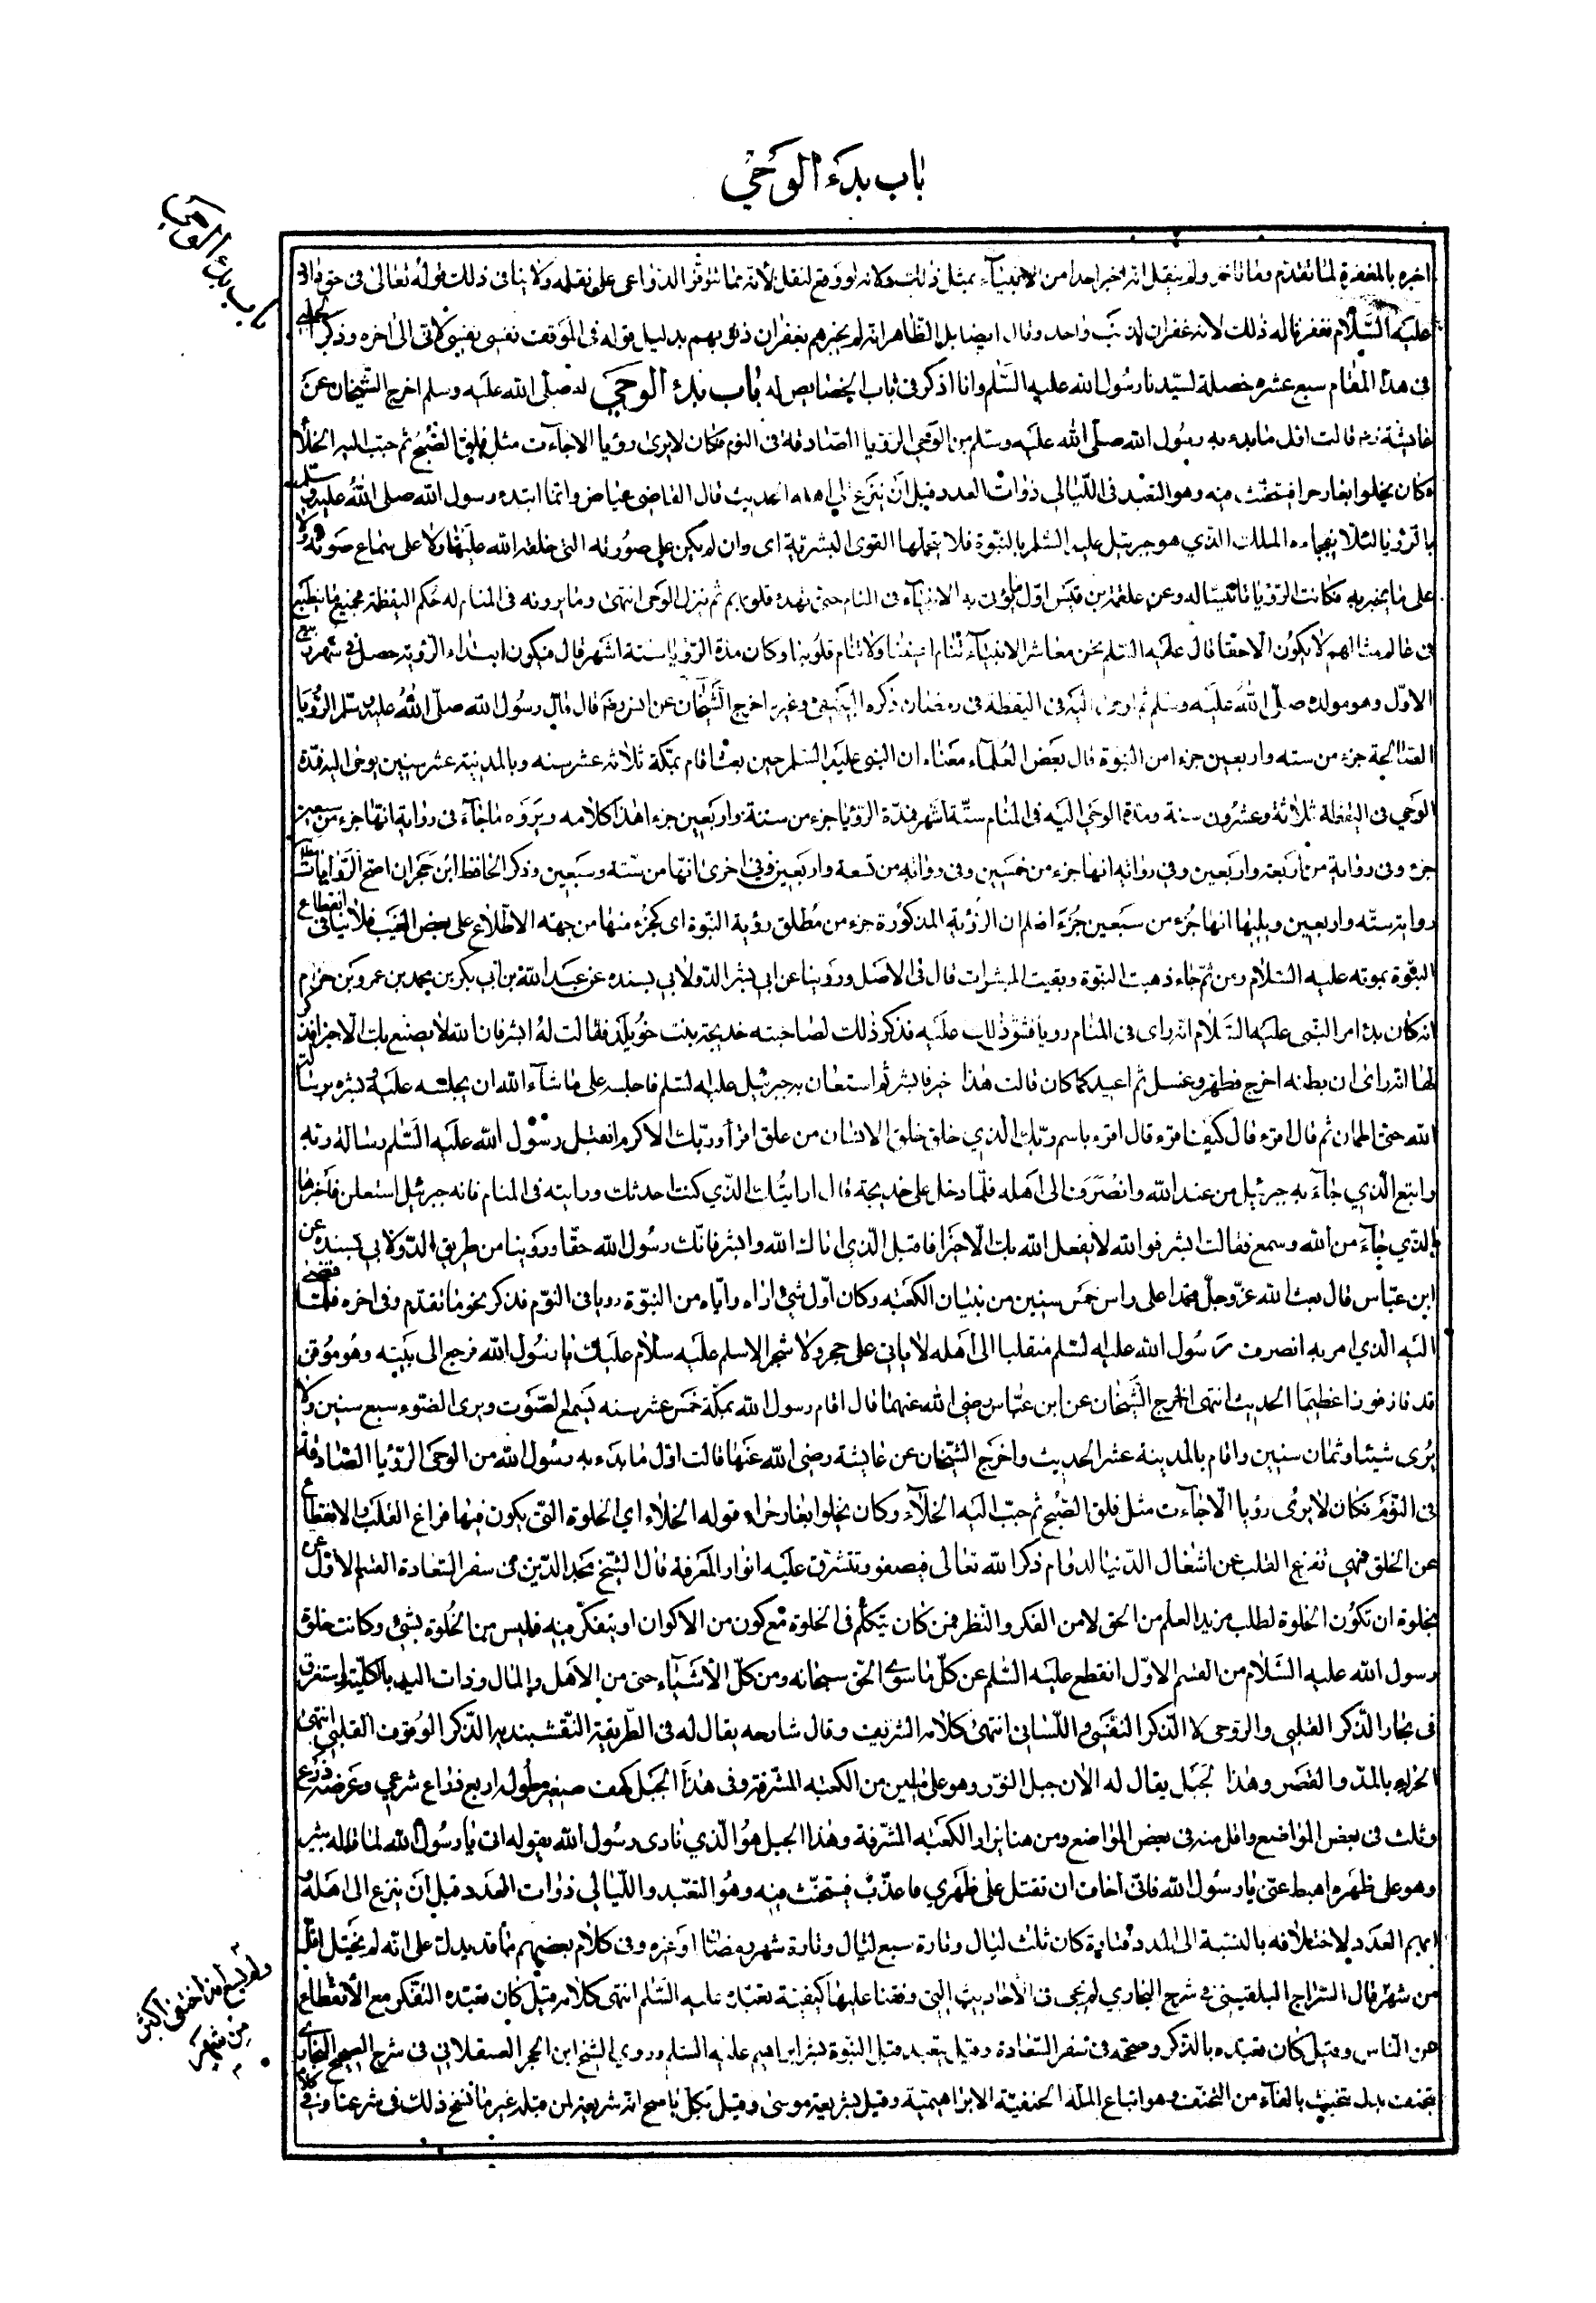 باب بدء الوحي
باب بدء الوحي
اخبره بالمغفرة لما تقدم وما تاخر ولم ينقل انه اخبر احدا من الانبياء بمثل ذلك ولانه لو وقع لنقل لانه مما تتوفر الدواعي على نقله ولا ينافي ذلك قوله تعالى في حق داود
عليه السلام فغفرنا له ذلك لانه غفران لذنب واحد وقال ايضا بل الظاهر انه لم يخبرهم بغفران ذنوبهم بدليل قوله في الموقف نفسي نفسي كما ياتي الى اخره وذكر
في هذا المقام سبع عشره خصلة لسيدنا رسول الله عليه السلم وانا اذكر في باب الخصايص له باب بدء الوحي له صلى الله عليه وسلم اخرج الشيخان عن
عايشة قالت اول ما بدء به رسول الله صلى الله عليه وسلم من الوحي الرؤيا الصادقة في النوم فكان لا يرى رؤيا الا جاءت مثل فلق الصبح ثم حبب اليه الخلا
وكان يخلوا بغار حرا فيتحنث فيه وهو التعبد في الليالي ذوات العدد قبل ان ينزع الى اهله الحديث قال القاضي عياض وانما ابتدء رسول الله صلى الله عليه وسلم
بالرؤيا لئلا يفجاه الملك الذي هو جبريل عليه السلم بالنبوة فلا تحملها القوى البشرية اى وان لم يكن على صورته التي خلقه الله عليها ولا على سماع صوته ولا
على ما يخبر به فكانت الرؤيا تانيسا له وعن علقمة بن قيس اول ما يؤتى به الانبياء في المنام حتى تهدء قلوبهم ثم ينزل الوحى انتهى وما يرونه في المنام له حكم اليقظة فجميع ما ينطبع
في عالم مثالهم لا يكون الا حقا قال عليه السلم نحن معاشر الانبياء تنام اعيننا ولا تنام قلوبنا وكان مدة الرؤيا ستة اشهر قال فيكون ابتداء الرؤية حصل في شهر ربيع
الاول وهو مولده صلى الله عليه وسلم ثم اوحى اليه في اليقظة في رمضان ذكره البيهقي وغيره اخرج الشيخان عن انس قال قال رسول الله صلى الله عليه وسلم الرؤيا
الصالحة جزء من سته واربعين جزءا من النبوة قال بعض العلماء معناه ان النبي عليه السلم حين بعث اقام بمكة ثلاثه عشر سنه وبالمدينة عشر سنين يوحى اليه فمدة
الوحي في اليقظة ثلاثة وعشرون سنة ومدة الوحي اليه في المنام ستة اشهر فمدة الرؤيا جزء من ستة واربعين جزء اهذا كلامه ويروه ما جاء في رواية انها جزء من سبعين
جزء وفي رواية من اربعة واربعين وفي رواية انها جزء من خمسين وفي رواية من تسعة واربعين وفي اخرى انها من ستة وسبعين وذكر الحافظ ابن حجر ان اصح الروايات مطلقا
رواية ستة واربعين ويليها انها جزء من سبعين جزء اعلم ان الرؤية المذكورة جزء من مطلق رؤية النبوة اى كجزء منها من جهة الاطلاع على بعض الغيب فلا ينافي انقطاع
النبوة بموته عليه السلام ومن ثم جاء ذهبت النبوة وبقيت المبشرات قال في الاصل وروينا عن ابي بشر الدولابي بسنده عن عبد الله بن ابي بكر بن محمد بن عمرو بن حزم
انه كان بدء امر النبي عليه السلام انه راى في المنام رؤيا فشق ذلك عليه فذكر ذلك لصاحبته خديجة بنت خويلد فقالت له ابشر فان الله لا يصنع بك الا خيرا فذكر
لها انه راى ان بطنه اخرج فطهر وغسل ثم اعيد كما كان قالت هذا خير فابشر ثم استعلن به جبرئيل عليه السلم فاجلسه على ما شاء الله ان يجلسه عليه بشره برسالة
الله حتى اطمان ثم قال اقرء قال كيف اقرء قال اقرء باسم ربك الذي خلق خلق الانسان من علق اقرأ وربك الاكرم فقبل رسول الله عليه السلم رسالة ربه
واتبع الذي جاء به جبرئيل من عند الله وانصرف الى اهله فلما دخل على خديجة قال ارايتك الذي كنت احدثك ورايته في المنام فانه جبرئيل استعلن فاخبرها
بالذي جاء من الله وسمع فقالت ابشر فوالله لا يفعل الله بك الا خيرا فاقبل الذي اتاك الله وابشر فانك رسول الله حقا وروينا من طريق الدولابي بسنده عن
ابن عباس قال بعث الله عز وجل محمدا على راس خمس سنين من بنيان الكعبة وكان اول شئ اراه واياه من النبوة رويا في النوم فذكر نحو ما تقدم وفى اخره فلما قضى
اليه الذي امر به انصرف رسول الله عليه السلم منقلبا الى اهله لا ياتي على حجر ولا شجر الا سلم عليه سلام عليك يا رسول الله فرجع الى بيته وهو موقن
قد فاز فوزا عظيما الحديث انتهى اخرج الشيخان عن ابن عباس رضى الله عنهما قال اقام رسول الله بمكة خمس عشر سنه يسمع الصوت ويرى الضوء سبع سنين ولا
يرى شيئا وثمان سنين واقام بالمدينة عشر الحديث واخرج الشيخان عن عايشة رضى الله عنها قالت اول ما بدء به رسول الله من الوحى الرؤيا الصادقة
في النوم فكان لا يرى رؤيا الا جاءت مثل فلق الصبح ثم حبب اليه الخلاء وكان يخلوا بغار حراء قوله الخلاء اي الخلوة التي يكون فيها فراغ القلب والانقطاع
عن الخلق فهي تفرغ القلب عن اشغال الدنيا لدوام ذكر الله تعالى فيصفو وتشرق عليه انوار المعرفة قال الشيخ مجد الدين في سفر السعادة القسم الاول عن
بخلوة ان تكون الخلوة لطلب مزيد العلم من الحق لا من الفكر والنظر فمن كان يتكلم في الخلوة مع كون من الاكوان او يتفكر فيه فليس من الخلوة بشئ وكانت خلوة
رسول الله عليه السلام من القسم الاول انقطع عليه السلم عن كل ما سوى الحق سبحانه ومن كل الاشياء حتى من الاهل والمال وذات اليد بالكلية واستغرق
في بحار الذكر القلبي والروحى لا الذكر النفسي واللساني انتهى كلامه الشريف وقال شارحه يقال له في الطريقة النقشبنديه الذكر الوقوف القلبي انتهى
الحراء بالمد والقصر وهذا لجبل يقال له الان جبل النور وهو على ميلين من الكعبة المشرفة وفى هذا الجبل كهف صغير طوله اربع ذراع شرعي وعرضه ذرع
وثلث في بعض المواضع واقل منه في بعض المواضع ومن هنا يزاد الكعبة المشرفة وهذا الجبل هو الذي نادى رسول الله بقوله الى يا رسول الله لما قال له ثبير
وهو على ظهره اهبط عنى يا رسول الله فاني اخاف ان تقتل على ظهري فاعذب فيتحنث فيه وهو التعبد والليالي ذوات العدد قبل ان ينزع الى اهله
ابهم العدد لاختلافه بالنسبة الى المدد فتارة كان ثلث ليال وتارة سبع ليال وتارة شهر رمضان او غيره وفى كلام بعضهم ما قد يدل على انه لم يختل اقل
من شهر قال السراج البلقيني في شرح البخاري لم يجى فى الاحاديث التى وقفنا عليها كيفية تعبده عليه السلم انتهى كلامه قيل كان تعبده التفكر مع الانقطاع
عن الناس وقيل كان تعبده بالذكر وصححه في سفر السعادة وقيل يتعبد قبل النبوة بشرع ابراهيم عليه السلم وروي الشيخ ابن الحجر العسقلاني في شرح الصحيح البخارى
يتحنف بدل يتحنث بالفاء من التحنف وهو اتباع الملة الحنفيّة الابراهيمية وقيل بشريعة موسى وقيل بكل ما صح انه شريعة لمن قبله غير ما نسخ ذلك في شرعنا وفي كلام
من شهر